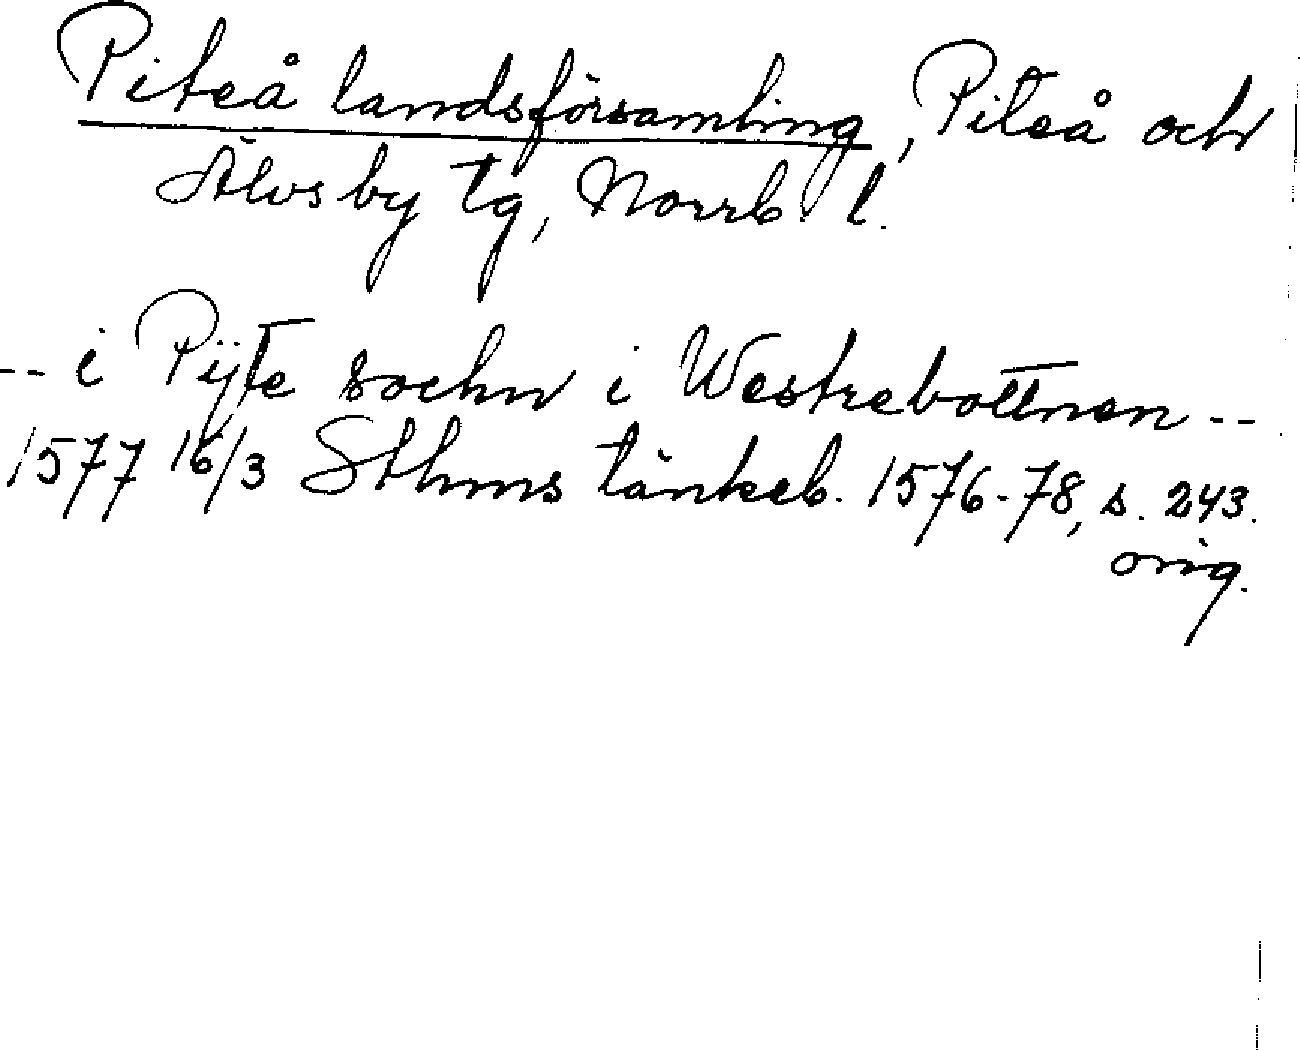 Piteå landsförsamling, Piteå och
Älvsby tg, Norrb. l.
-- i Pijte sochn i Westrebottnen --
1577 16/3 Sthms tänkeb. 1576-78, s. 243.
orig.